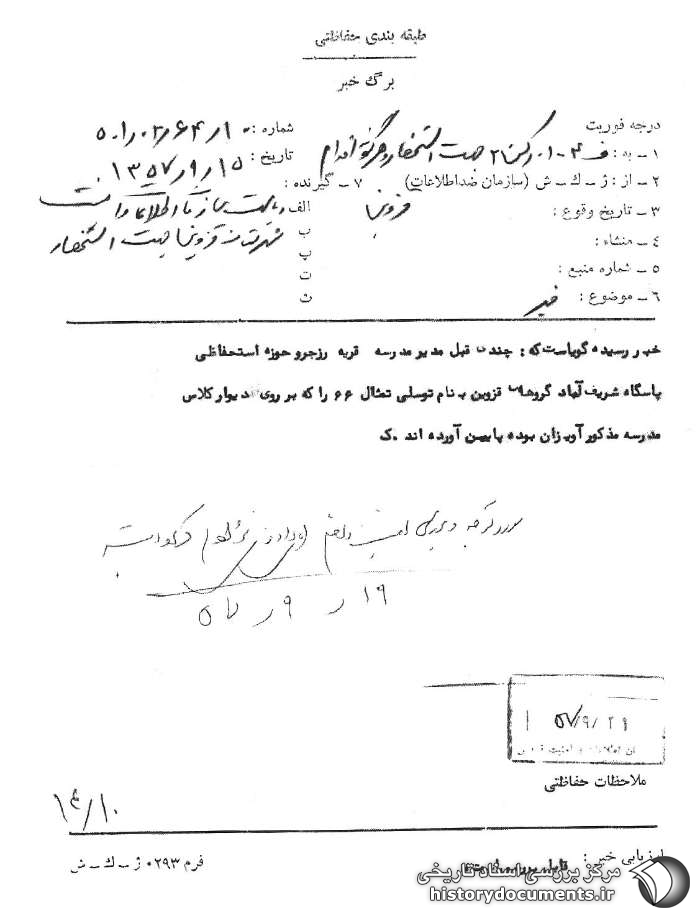 طبقه بندی حفاظتی
برگ خبر
درجه فوریت
شماره : ۵۰۱٫۰۲٫۶۴٫۱۰
۱ – به : جهت استحضار و هرگونه اقدام
تاریخ : ۱۳۵۷٫۹٫۱۵
۲ – از : ژ – ک – ش (سازمان ضداطلاعات)
۷ – گیرنده :
۳ – تاریخ وقوع :
قزوین
الف ریاست سازمان اطلاعات و امنیت
۴ – منشاء :
ب شهرستان قزوین جهت استحضار
پ
۵ – شماره منبع :
ت
۶ – موضوع : خبر
ث
خبر رسیده گویاست که : چندی قبل مدیر مدرسه قریه رزجرو حوزه استحفاظی
پاسگاه شریف آباد گروهان قزوین بنام توسلی تمثال ۶۶ را که بر روی دیوار کلاس
مدرسه مذکور آویزان بوده پایین آورده اند .ک
۱۹ ر ۹ ر ۵۷
۵۷/۹/۲۱
ملاحظات حفاظتی
۱۴/۱۰
ارزیابی خبر :
فرم ۰۲۹۳ ژ – ک – ش
مرکز بررسی اسناد تاریخی
historydocuments.ir